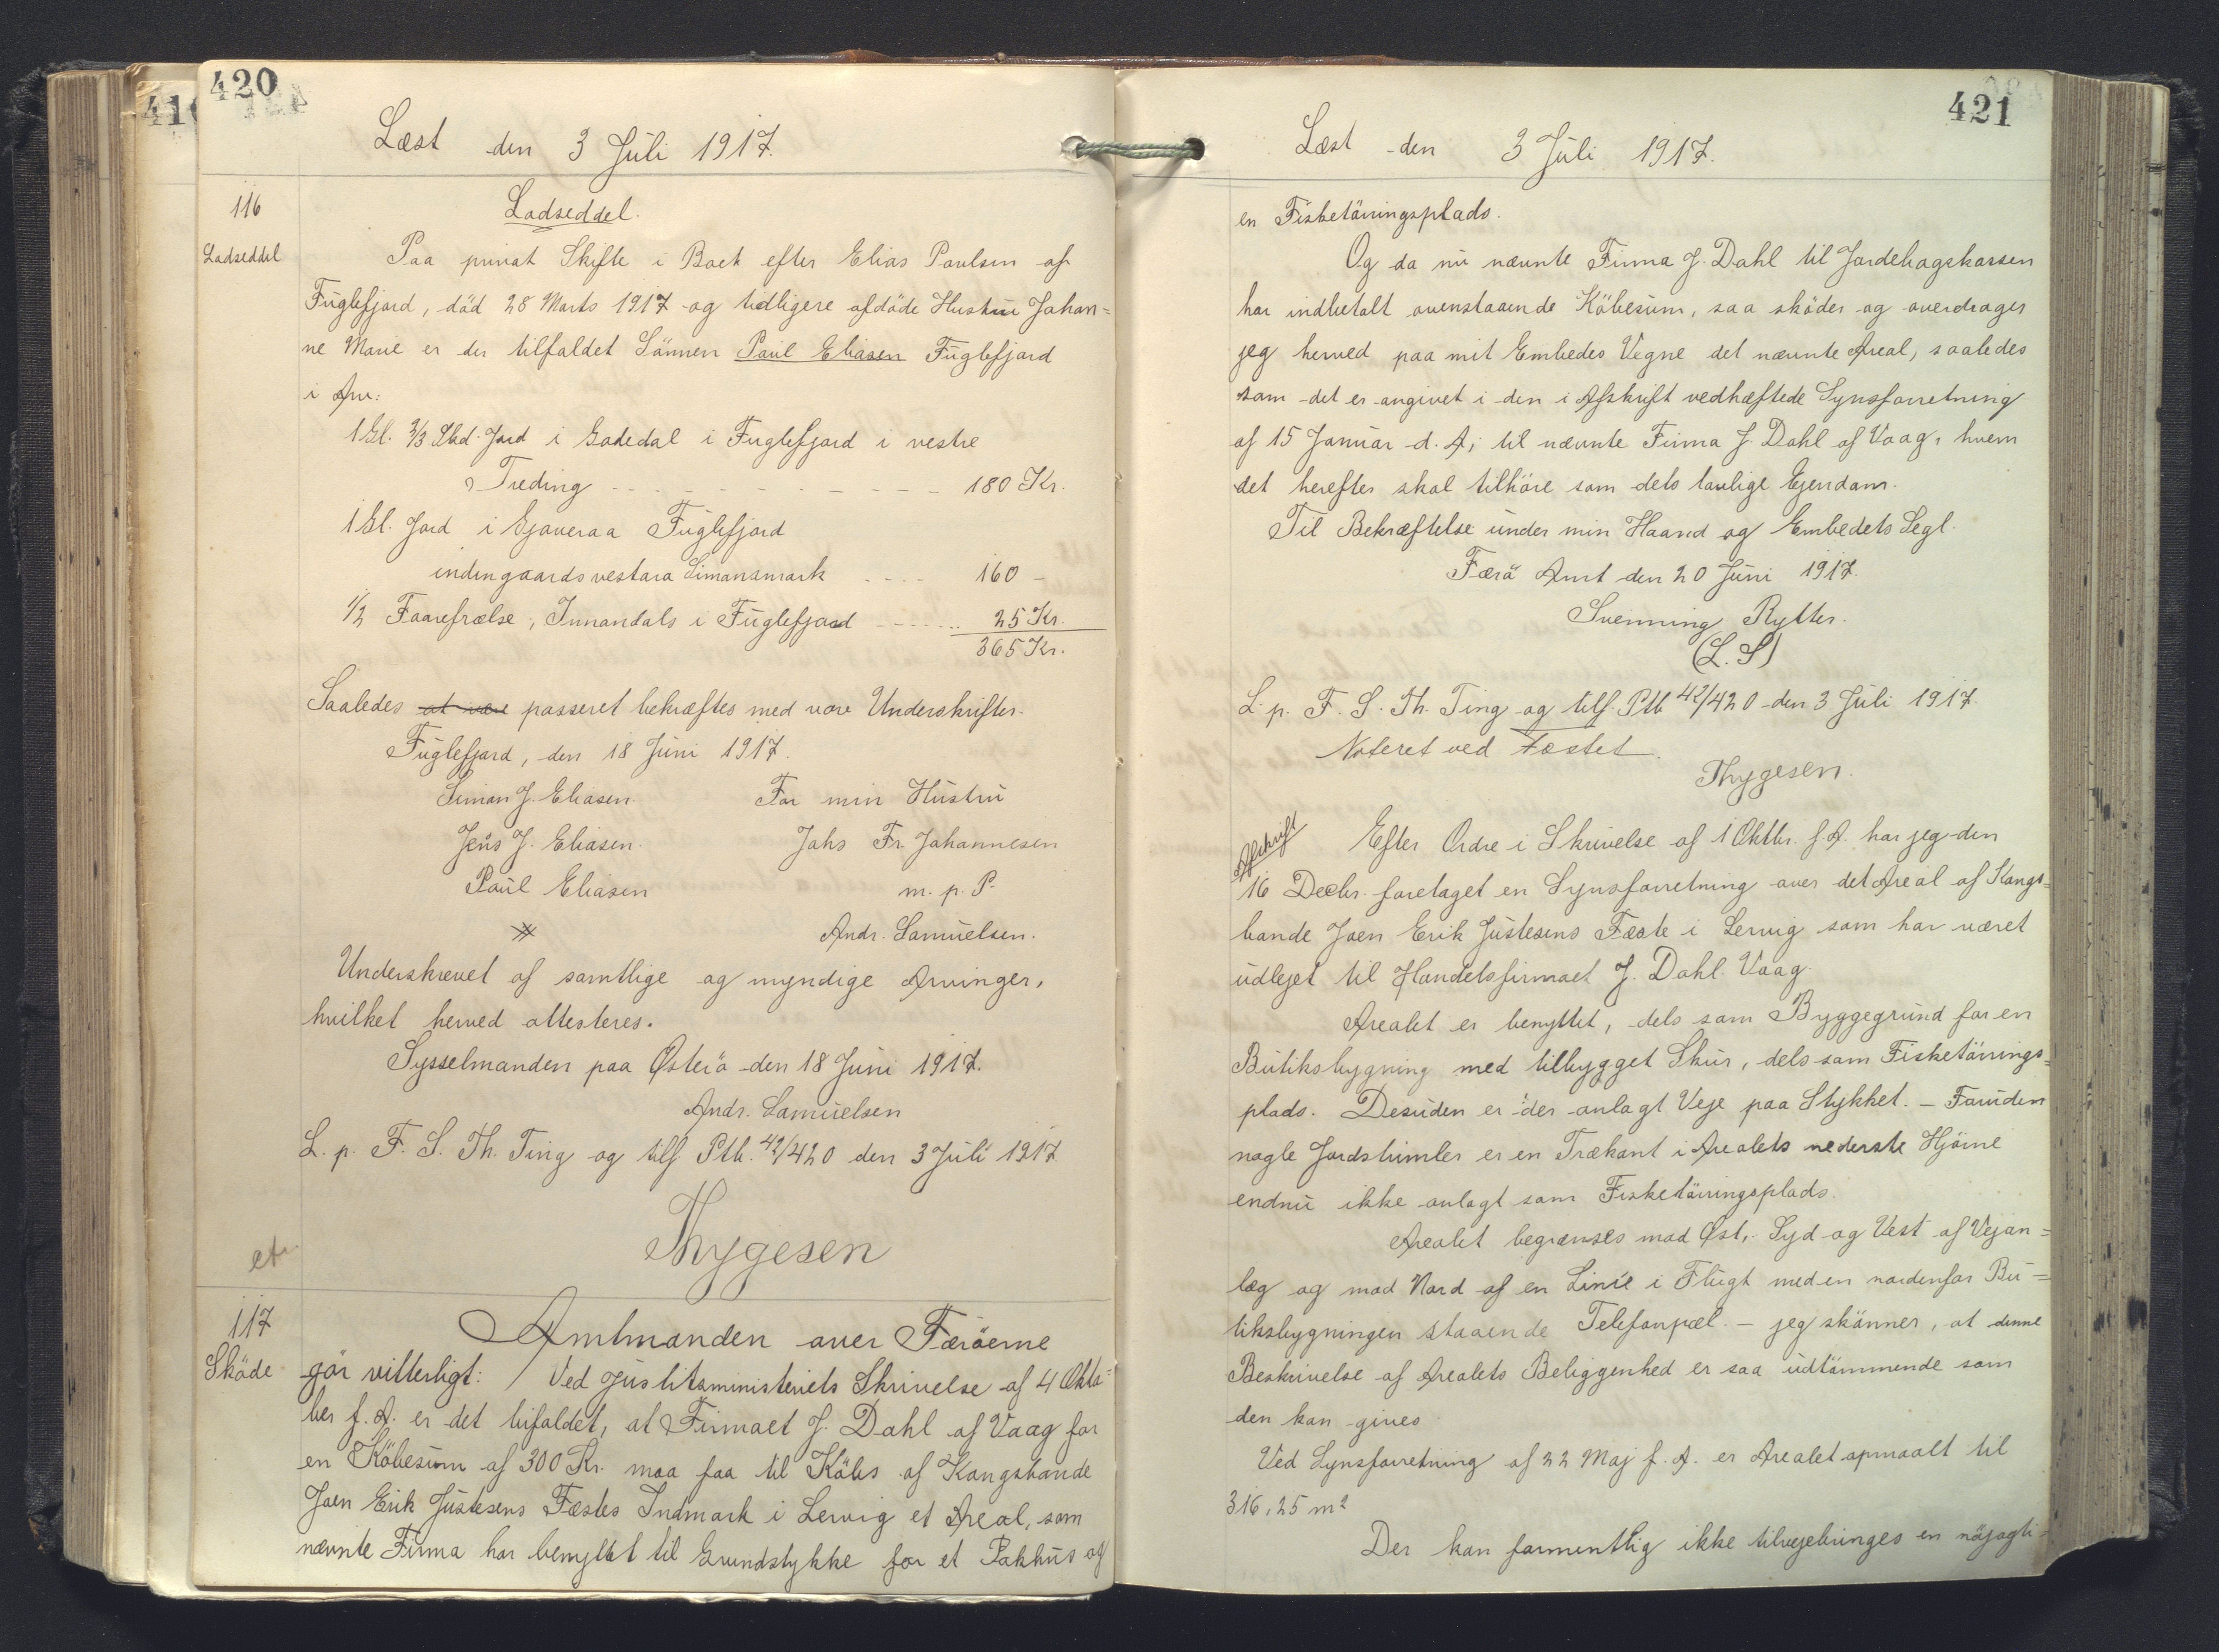 420
Læst den 3 Juli 1917.
116
Lodseddel
Lodseddel.
Paa privat Skifte i Boet efter Elias Poulsen af
Fuglefjord, död 28 Marts 1917 og tidligere afdöde Hustru Johan=
ne Marie er der tilfaldet Sönnen Poul Eliasen Fuglefjord
i Arv:
1 Gl. 2/3 Skd. Jord i Godedal i Fuglefjord i vestre
Treding - - - - - - - - 180 Kr.
1 Gl. Jord i Fuglefjord
indengaards vestara Simonsmark - - - - 160 -
1/2 Faarefrælse, Innandals i Fuglefjord - - - - - 25 Kr.
365 Kr.
Saaledes at være passeret bekræftes med vore Underskrifter.
Fuglefjord, den 18 Juni 1917.
Simon J. Eliasen. For min Hustru
Jens J. Eliasen. Johs Fr. Johannesen
Poul Eliasen m. p. P.
Andr. Samuelsen.
Underskrevet af samtlige og myndige Arvinger,
hvilket herved attesteres.
Sysselmanden paa Österö den 18 Juni 1917.
Andr. Samuelsen
L. p. F. S. Th. Ting og tilf Ptb. 42/420 den 3 Juli 1917
Thygesen
117
Sköde
Amtmanden over Færöerne
gör vitterligt: / Ved Justitsministeriets Skrivelse af 4 Okto=
ber f. A. er det bifaldet, at Firmaet J. Dahl af Vaag for
en Köbesum af 300 Kr. maa faa til Köbs af Kongsbonde
Joen Erik Justesens Fæstes Indmark i Lervig et Areal, som
nævnte Firma har benyttet til Grundstykke for et Pakhus og
421
Læst den 3 Juli 1917.
en Fisketörringsplads.
Og da nu nævnte Firma J. Dahl til Jordebogskassen
har indbetalt ovenstaaende Köbesum, saa sköder og overdrager
jeg herved paa mit Embedes Vegne det nævnte Areal, saaledes
som det er angivet i den i Afskrift vedhæftede Synsforretning
af 15 Januar d. A, til nævnte Firma J. Dahl af Vaag, hvem
det herefter skal tilhöre som dets lovlige Ejendom.
Til Bekræftelse under min Haand og Embedets Segl.
Færö Amt den 20 Juni 1917.
Svenning Rytter.
(L. S)
L. p. F. S. Th. Ting og tilf. Ptb 42/420 den 3 Juli 1917.
Noteret ved Fæstet.
Thygesen.
Afskrift
Efter Ordre i Skrivelse af 1 Oktbr. f. A. har jeg den
16 Decbr. foretaget en Synsforretning over det Areal af Kongs=
bonde Joen Erik Justesens Fæste i Lervig som har været
udlejet til Handelsfirmaet J. Dahl. Vaag.
Arealet er benyttet, dels som Byggegrund for en
Butiksbygning med tilbygget Skur, dels som Fisketörrings=
plads. Desuden er der anlagt Veje paa Stykket. - Foruden
nogle Jordstrimler er en Trekant i Arealets nederste Hjörne
endnu ikke anlagt som Fisketörringsplads.
Arealet begrænses mod Öst, Syd og Vest af Vejan=
læg og mod Nord af en Linie i Flugt med en nordenfor Bu=
tiksbygningen staaende Telefonpæl. - jeg skönner, at denne
Beskrivelse af Arealets Beliggenhed er saa udtömmende som
den kan gives
Ved Synsforretning af 22 Maj f. A. er Arealet opmaalt til
316,25 m²
Der kan formentlig ikke tilvejebringes en nöjagti=